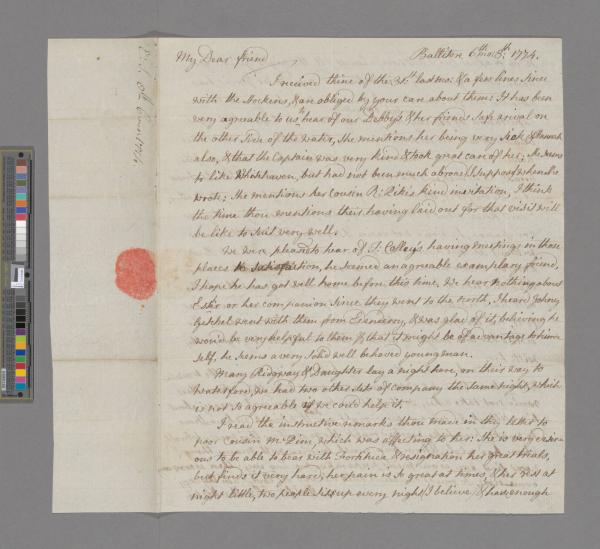 My Dear friend Ballitore 6th mo: 5th 1774.
I recieved thine of the 31st last mo: & a few lines since
with the Stockens, & are obliged by your care about them: It has been
very agreable to us to hear of our Debby's & her friends safe arival on
the other side of the water, She mentions her being very sick & Hannah
also, & that the Captain was very kind & took great care of her; She seems
to like Whithaven, but had not been much abroad I suppose when she
wrote: She mentions her Cousin R: kind invitation, I think
the time thou mentions their having laid out for that visit will
be like to suit very well.
We were pleased to hear of J. Colley's having meetings in those
places to satisfaction, he seemed an agreable examplary friend,
I hope he has got well home before this time. We hear nothing about
or her companion since they went to the north, I heard
went with them from , & was glad of it, believing he
would be very helpful to them & that it might be of advantage to him
self, he seems a very solid well behaved young man.
Mary Ridgway & Daughter lay a night here, on their way to
Waterford, we had two other sets of company the same night, which
is not so agreable if we could help it.
I read the instructive remarks thou made in thy letter to
poor cousin , which was affecting to her: She is very desir-
ous to be able to bear with fortitude & resignation her great trials,
but finds it very hard, her pain is so great at times, & her rest at
night little, two people sits up every night I believe, & has enough